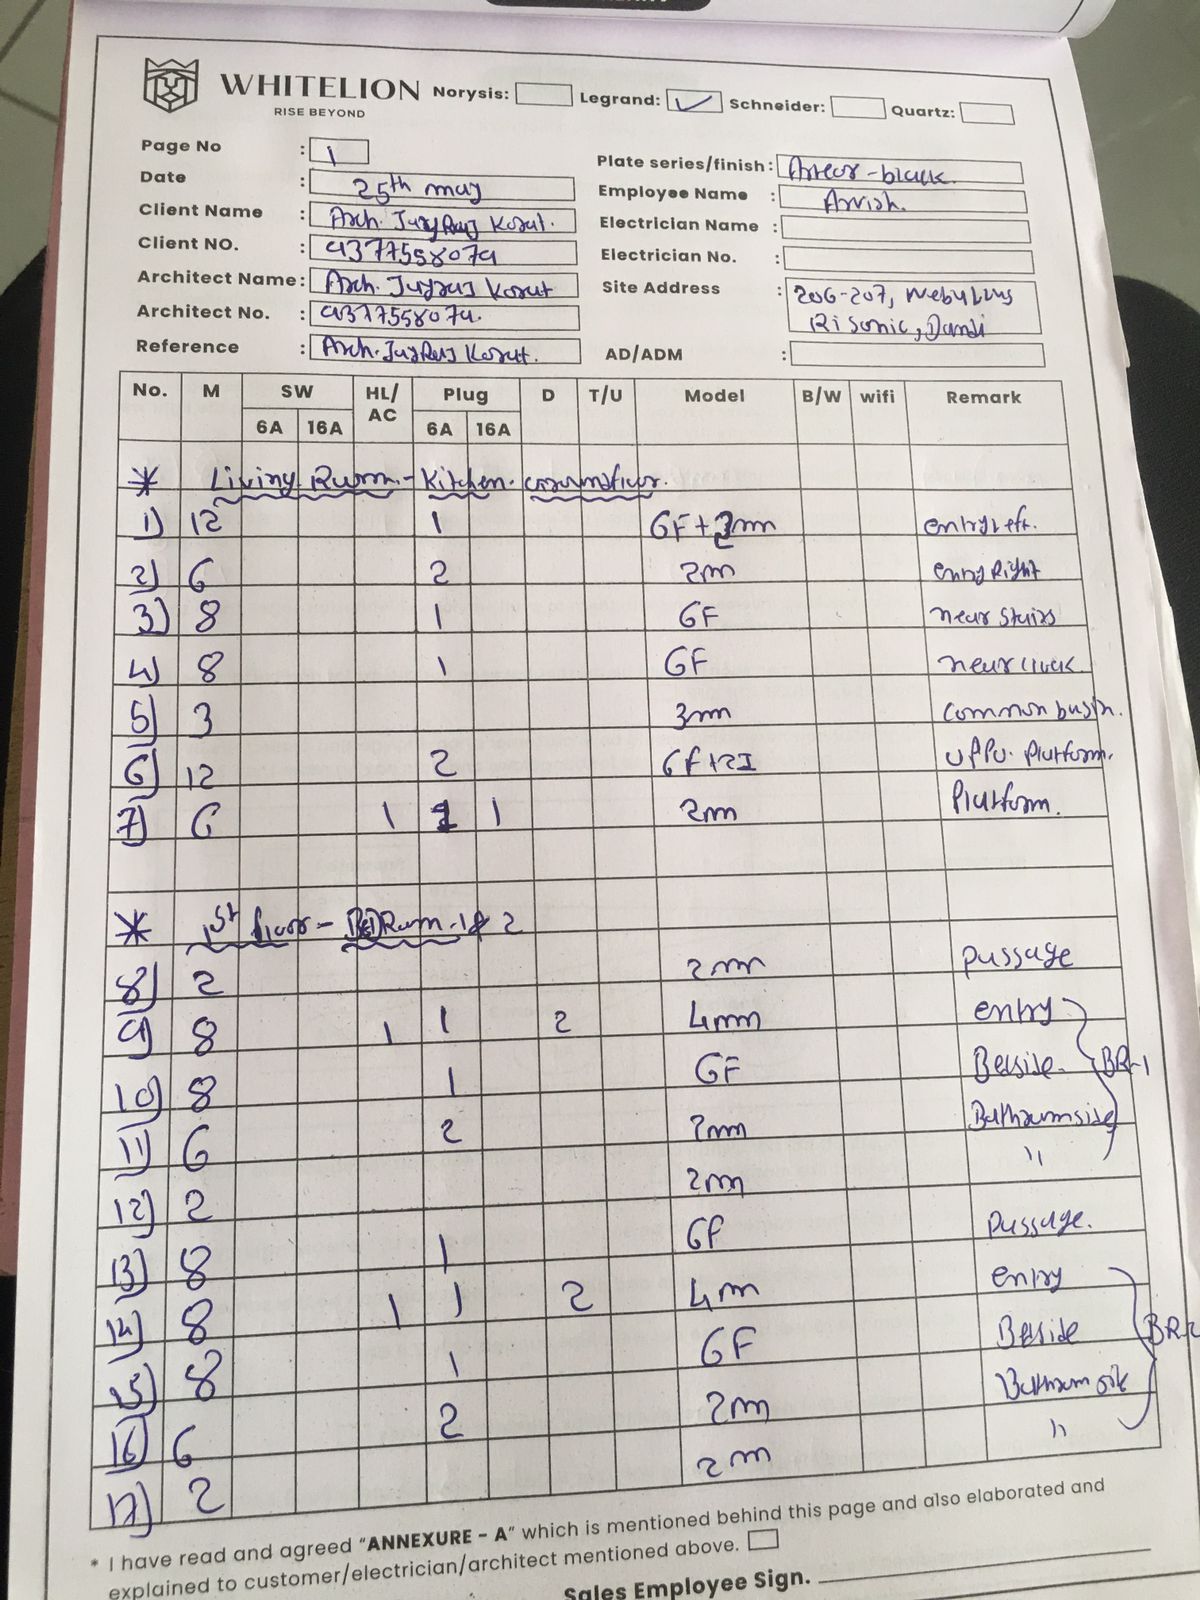 WHITELION
RISE BEYOND
Norysis: Legrand: ✓ Schneider: Quartz:
Page No : 1
Date : 25th may
Client Name : Arch.
Client NO. : 9377558079
Architect Name : Arch.
Architect No. : 9377558079.
Reference : Arch.
Plate series/finish : Arteor - black.
Employee Name :
Electrician Name :
Electrician No. :
Site Address : 206-207,
AD/ADM :
No. M SW HL/AC Plug D T/U Model B/W wifi Remark
6A 16A 6A 16A
* Living Room - Kitchen.
1) 12 1 GF+3m entry left.
2) 6 2 2m entry Right
3) 8 1 GF near stairs
4) 8 1 GF near
5) 3 3m common basin.
6) 12 2 GF+2I platform.
7) 6 1 1 1 2m Platform.
* 1st floor - BedRoom-1 & 2
8) 2 2m passage
9) 8 1 1 2 4m entry
10) 8 1 GF Bedside BR-1
11) 6 2 2m Bathroomside
12) 2 2m "
13) 8 1 GF passage.
14) 8 1 1 2 4m entry
15) 8 1 GF Bedside
16) 6 2 2m
17) 2 2m "
* I have read and agreed “ANNEXURE - A” which is mentioned behind this page and also elaborated and
explained to customer/electrician/architect mentioned above.
Sales Employee Sign.